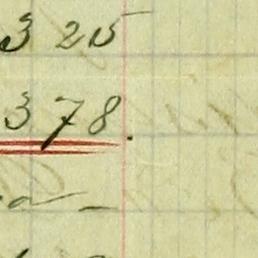 3 25
3 78.